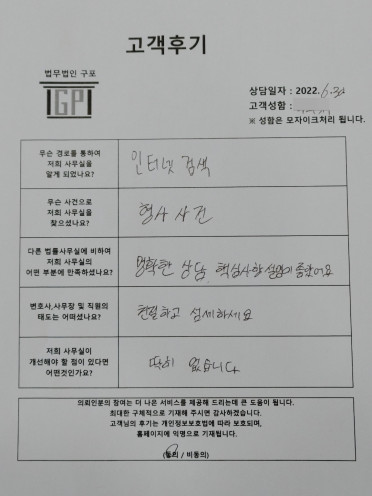 고객후기
법무법인 구포
GP
상담일자 : 2022. 6. 30
고객성함 :
※ 성함은 모자이크처리 됩니다.
무슨 경로를 통하여
저희 사무실을
알게 되었나요?
인터넷 검색
무슨 사건으로
저희 사무실을
찾으셨나요?
형사 사건
다른 법률사무실에 비하여
저희 사무실의
어떤 부분에 만족하셨나요?
명확한 상담, 핵심사항 설명이 좋았어요
변호사,사무장 및 직원의
태도는 어떠셨나요?
친절하고 섬세하세요
저희 사무실이
개선해야 할 점이 있다면
어떤것인가요?
딱히 없습니다
의뢰인분의 참여는 더 나은 서비스를 제공해 드리는데 큰 도움이 됩니다.
최대한 구체적으로 기재해 주시면 감사하겠습니다.
고객님의 후기는 개인정보보호법에 따라 보호되며,
홈페이지에 익명으로 기재됩니다.
(동의 / 비동의)